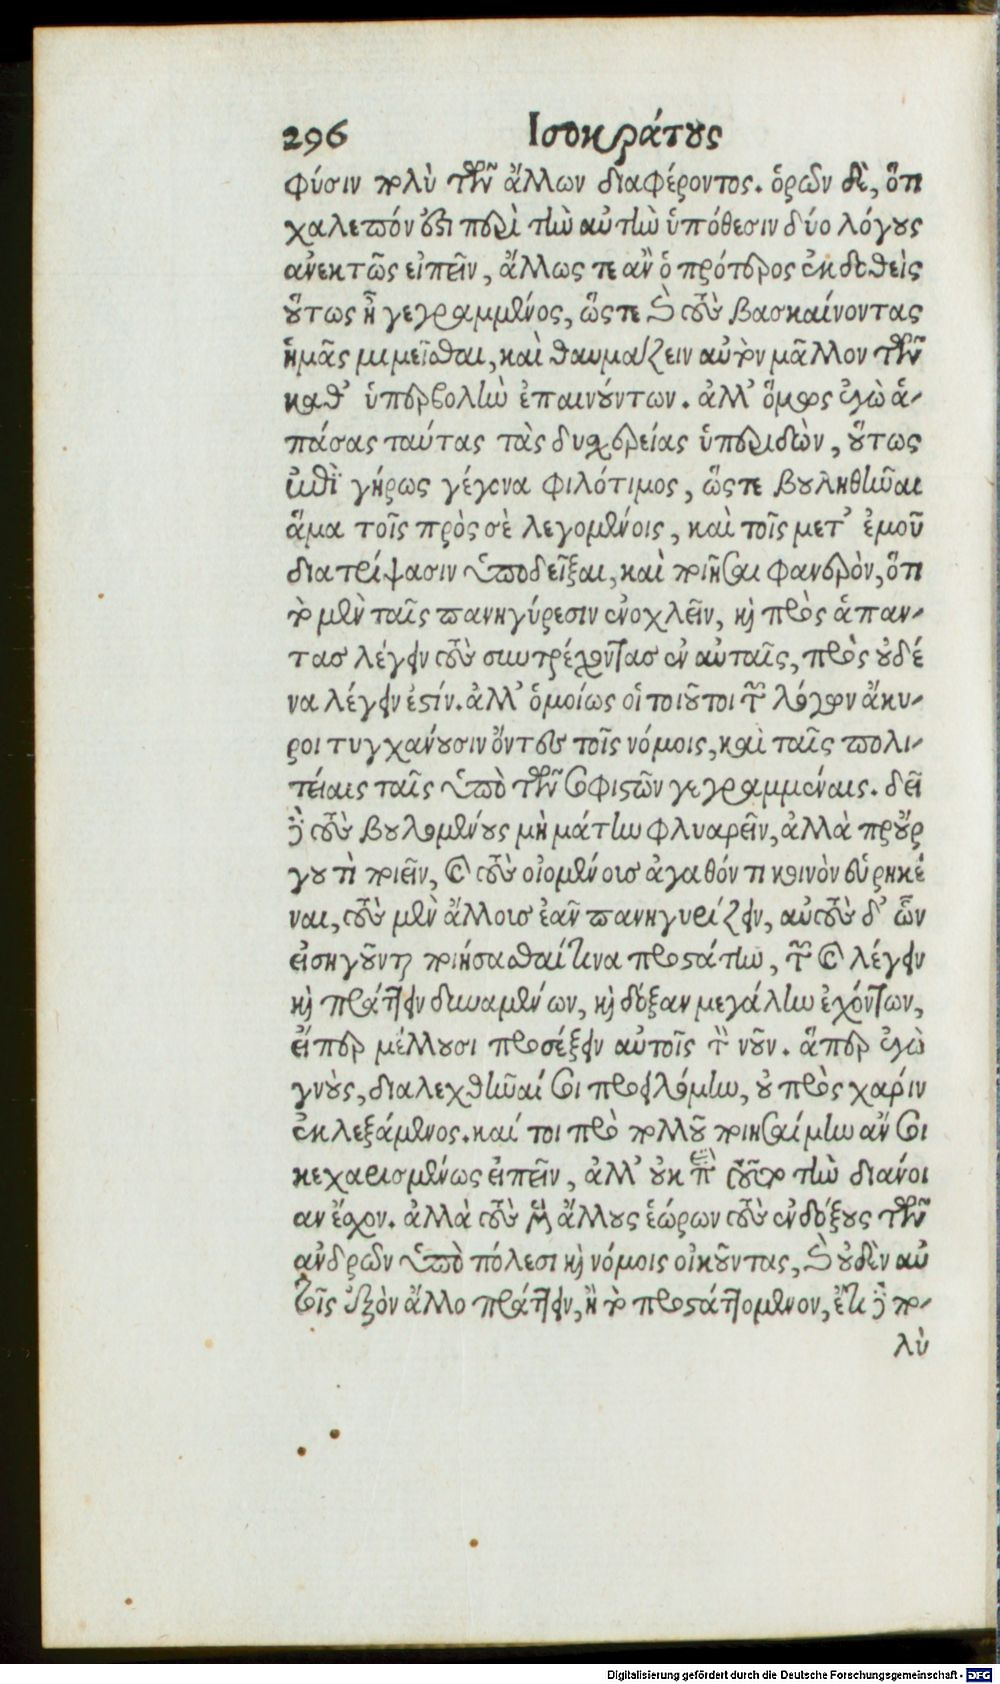 296 Ισοκράτους
φύσιν πολὺ τῶν ἄλλων διαφέροντος. ὁρῶν δὲ, ὅτι
χαλεπόν ἐστι περὶ τὴν αὐτὴν ὑπόθεσιν δύο λόγους
ἀνεκτῶς εἰπεῖν, ἄλλως τε ἂν ὁ πρότερος ἐκδοθεὶς
οὕτως ᾖ γεγραμμένος, ὥστε καὶ τοὺς βασκαίνοντας
ἡμᾶς μιμεῖσθαι, καὶ θαυμάζειν αὐτὸν μᾶλλον τῶν
καθ' ὑπερβολὴν ἐπαινούντων. ἀλλ' ὅμως ἐγὼ ἁ-
πάσας ταύτας τὰς δυσχερείας ὑπεριδὼν, οὕτως
ἐπὶ γήρως γέγονα φιλότιμος, ὥστε βουληθῆναι
ἅμα τοῖς πρὸς σὲ λεγομένοις, καὶ τοῖς μετ' ἐμοῦ
διατρίψασιν ὑποδεῖξαι, καὶ ποιῆσαι φανερὸν, ὅτι
τὸ μὲν ταῖς πανηγύρεσιν ἐνοχλεῖν, καὶ πρὸς ἅπαν-
τας λέγειν τοὺς συντρέχοντας ἐν αὐταῖς, πρὸς οὐδέ
να λέγειν ἐστίν. ἀλλ' ὁμοίως οἱ τοιοῦτοι τῶν λόγων ἄκυ-
ροι τυγχάνουσιν ὄντες τοῖς νόμοις, καὶ ταῖς πολι-
τείαις ταῖς ὑπὸ τῶν σοφιστῶν γεγραμμέναις. δεῖ
δὲ τοὺς βουλομένους μὴ μάτην φλυαρεῖν, ἀλλὰ προὔρ
γου τὶ ποιεῖν, καὶ τοὺς οἰομένοις ἀγαθόν τι κοινὸν εὑρηκέ
ναι, τοὺς μὲν ἄλλοις ἐᾶν πανηγυρίζειν, αὐτοὺς δ' ὧν
εἰσηγοῦνται ποιήσασθαί τινα προστάτην, τῶν καὶ λέγειν
καὶ πράττειν δυναμένων, καὶ δόξαν μεγάλην ἐχόντων,
εἴπερ μέλλουσι προσέξειν αὐτοῖς τὸν νοῦν. ἅπερ ἐγὼ
γνοὺς, διαλεχθῆναί σοι προειλόμην, οὐ πρὸς χάριν
ἐκλεξάμενος. καί τοι πρὸ πολλοῦ ποιησαίμην ἄν σοι
κεχαρισμένως εἰπεῖν, ἀλλ' οὐκ ἐπὶ τούτῳ τὴν διάνοι
αν ἔσχον. ἀλλὰ τοὺς μὲν ἄλλους ἑώρων τοὺς ἐνδόξους τῶν
ἀνδρῶν ὑπὸ πόλεσι καὶ νόμοις οἰκοῦντας, καὶ οὐδὲν αὐ
τοῖς ἐξὸν ἄλλο πράττειν, ἢ τὸ προσταττόμενον, ἔτι δὲ πο-
λὺ
Digitalisierung gefördert durch die Deutsche Forschungsgemeinschaft - DFG